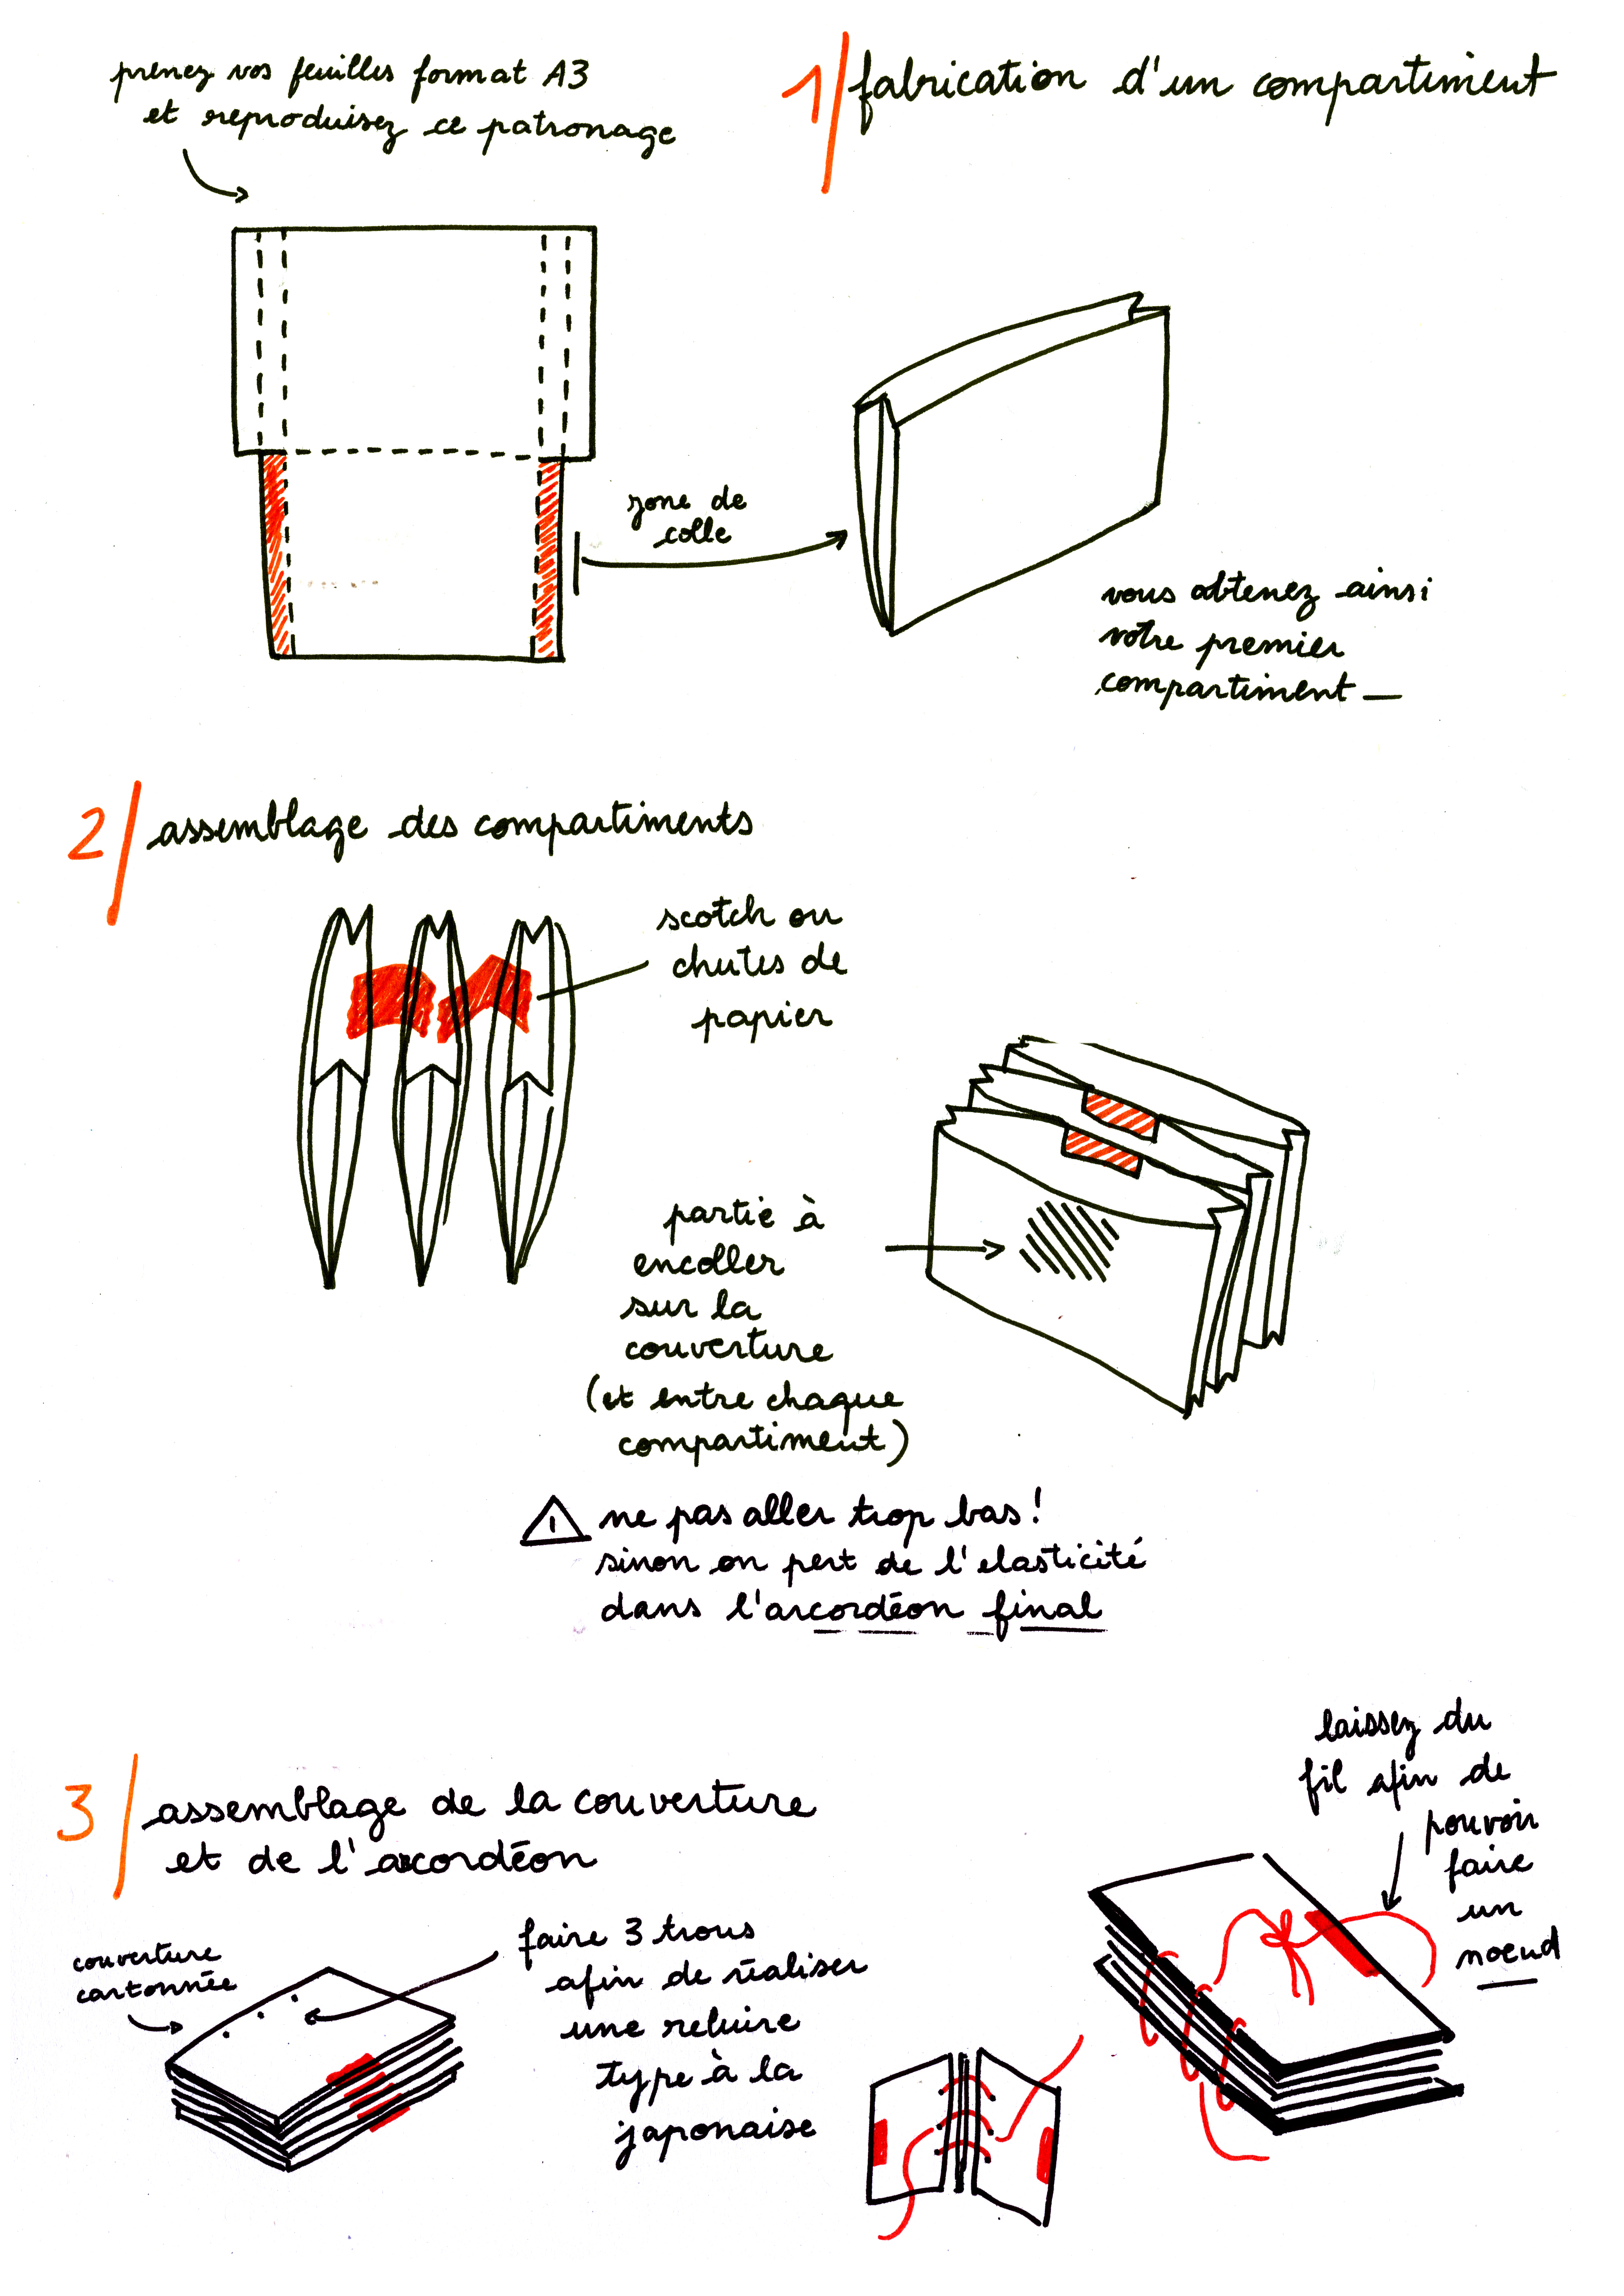 prenez vos feuilles format A3
et reproduisez ce patronage
1/ fabrication d'un compartiment
zone de
colle
vous obtenez ainsi
votre premier
compartiment —
2/ assemblage des compartiments
scotch ou
chutes de
papier
partie à
encoller
sur la
couverture
(et entre chaque
compartiment)
⚠ ne pas aller trop bas !
sinon on pert de l'elasticité
dans l'arcordéon final
3/ assemblage de la couverture
et de l'accordéon
couverture
cartonnée
faire 3 trous
afin de réaliser
une reluire
type à la
japonaise
laissez du
fil afin de
pouvoir
faire
un
noeud